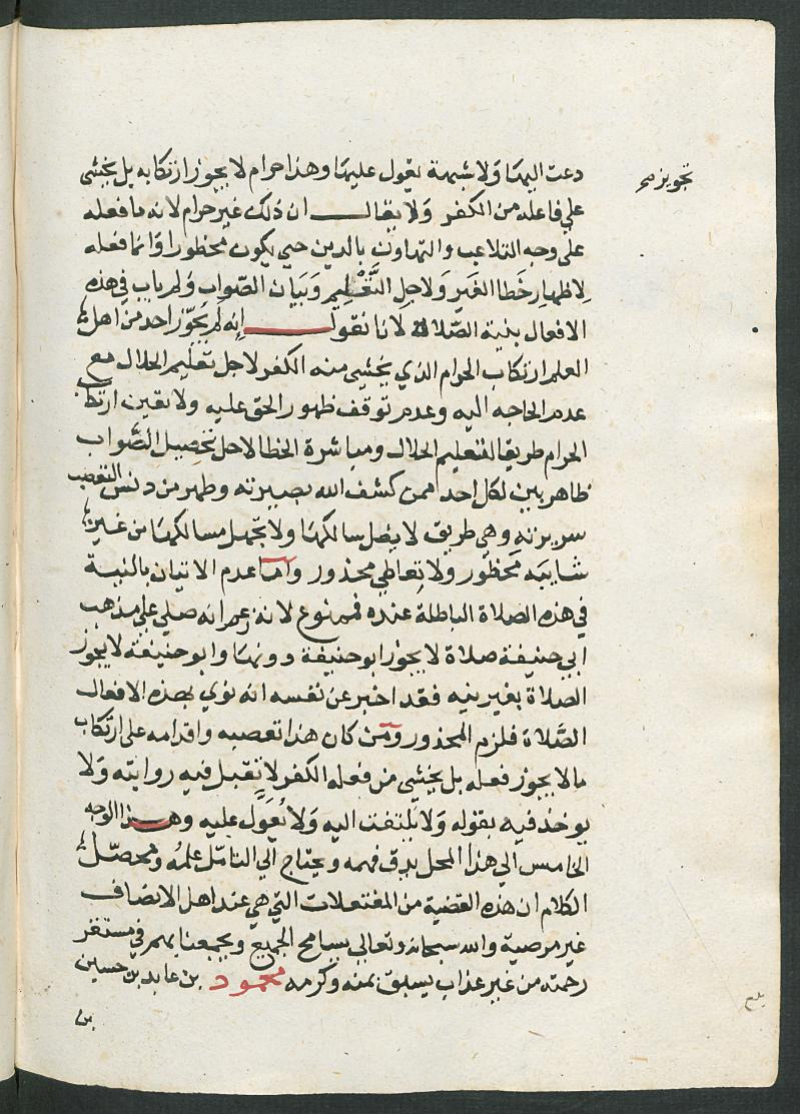 تجويز صح
دعت اليها ولا شبهة يعول عليها وهذا حرام لا يجوز ارتكابه بل يخشى
على فاعله من الكفر ولا يقال ان ذلك غير حرام لانه ما فعله
على وجه التلاعب والتهاون بالدين حتى يكون محظورا وانما فعله
لاظهار خطا الغير ولاجل التعليم وبيان الصواب ولم يات في هذه
الافعال بنية الصلاة لانا نقول انه لم يجوّز احد من اهل
العلم ارتكاب الحرام الذي يخشى منه الكفر لاجل تعليم الحلال مع
عدم الحاجه اليه وعدم توقف ظهور الحق عليه ولا تعين ارتكاب
الحرام طريقا لتعليم الحلال ومباشرة الخطا لاجل تحصيل الصواب
ظاهر بين لكل احد ممن كشف الله بصيرته وطهر من دنس التعصب
سريرته وهي طريق لا يضل سالكها ولا تجهل مسالكها من غير
شايبه محظور ولا تعاطي محذور واما عدم الاتيان بالنية
في هذه الصلاة الباطلة عنده فممنوع لانه زعم انه صلي على مذهب
ابي حنيفة صلاة لا يجوز ابو حنيفة دونها وابو حنيفة لا يجوز
الصلاة بغير نيه فقد اخبر عن نفسه انه نوي بهذه الافعال
الصلاة فلزم المحذور ومن كان هذا تعصبه واقدامه على ارتكاب
ما لا يجوز فعله بل يخشي من فعله الكفر لا تقبل فيه روايته ولا
يوخذ فيه بقوله ولا يلتفت اليه ولا يعول عليه وهذا الوجه
الخامس الي هذا المحل يدق فهمه ويحتاج الي التامل علمه ومحصل
الكلام ان هذه القضية من المفتعلات التي هي عند اهل الانصاف
غير مرضية والله سبحانه وتعالي يسامح الجميع ويجمعنا بهم في مستقر
رحمته من غير عذاب يسبق بمنه وكرمه محمود بن عابد بن حسين
بن